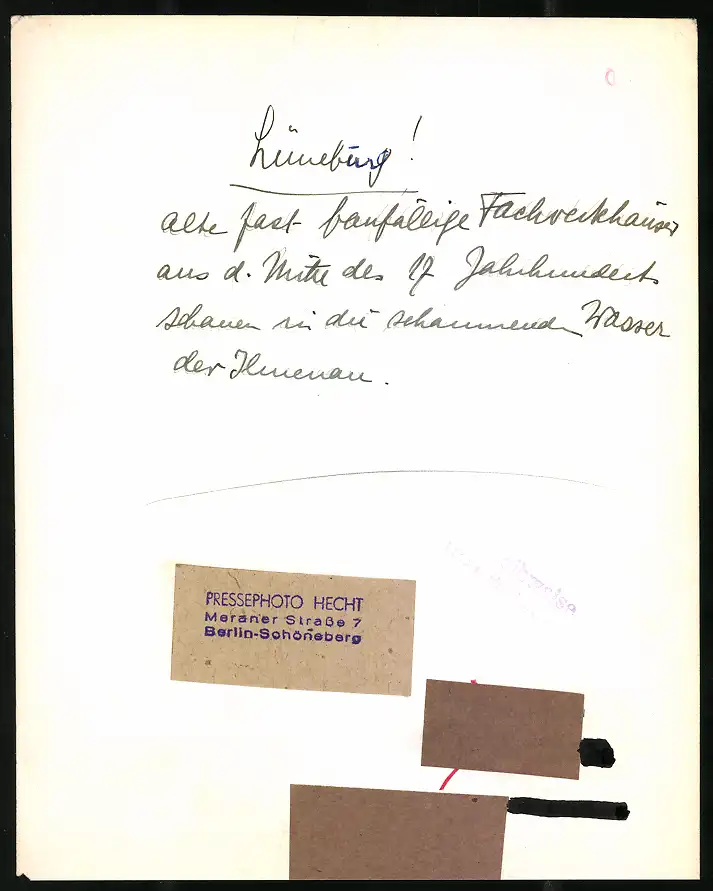 Lüneburg!
alte fast baufällige Fachwerkhäuser
aus d. Mitte des 17 Jahrhunderts
schauen in die schäumenden Wasser
der Ilmenau.
PRESSEPHOTO HECHT
Meraner Straße 7
Berlin-Schöneberg